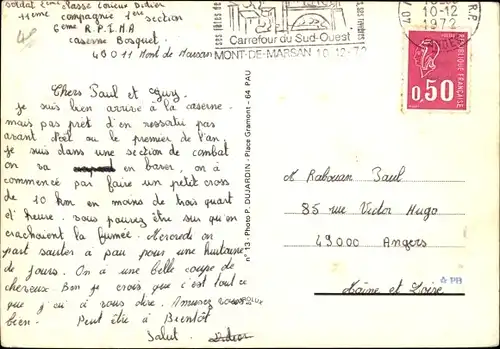 soldat 2ème classe Didier
11ème compagnie 1ère section
6ème R.P.I.M.A
caserne Bosquet
40011 Mont de Marsan
Carrefour du Sud-Ouest
MONT-DE-MARSAN 10.12.72
10-12
1972
REPUBLIQUE FRANÇAISE
0,50
Chers Paul et
je suis bien arrivé à la caserne.
mais pas prêt d'en ressortir pas
avant Noël ou le premier de l'an.
je suis dans une section de combat
on va en baver, on a
commencé par faire un petit cross
de 10 km en moins de trois quart
d'heure. vous pouvez être sur qu'en
crachaient la fumée. Mercredi on
part sauter à pau pour une huitaine
de jours. On a une belle coupe de
cheveux Bon je crois que c'est tout ce
que j'ai à vous dire. Amusez vous
bien. Peut être à Bientôt
Salut. Didier
n° 13 - Photo P. DUJARDIN - Place Gramont - 64 PAU
M Rabouan Paul
85 rue Victor Hugo
49000 Angers
Maine et Loire
PB